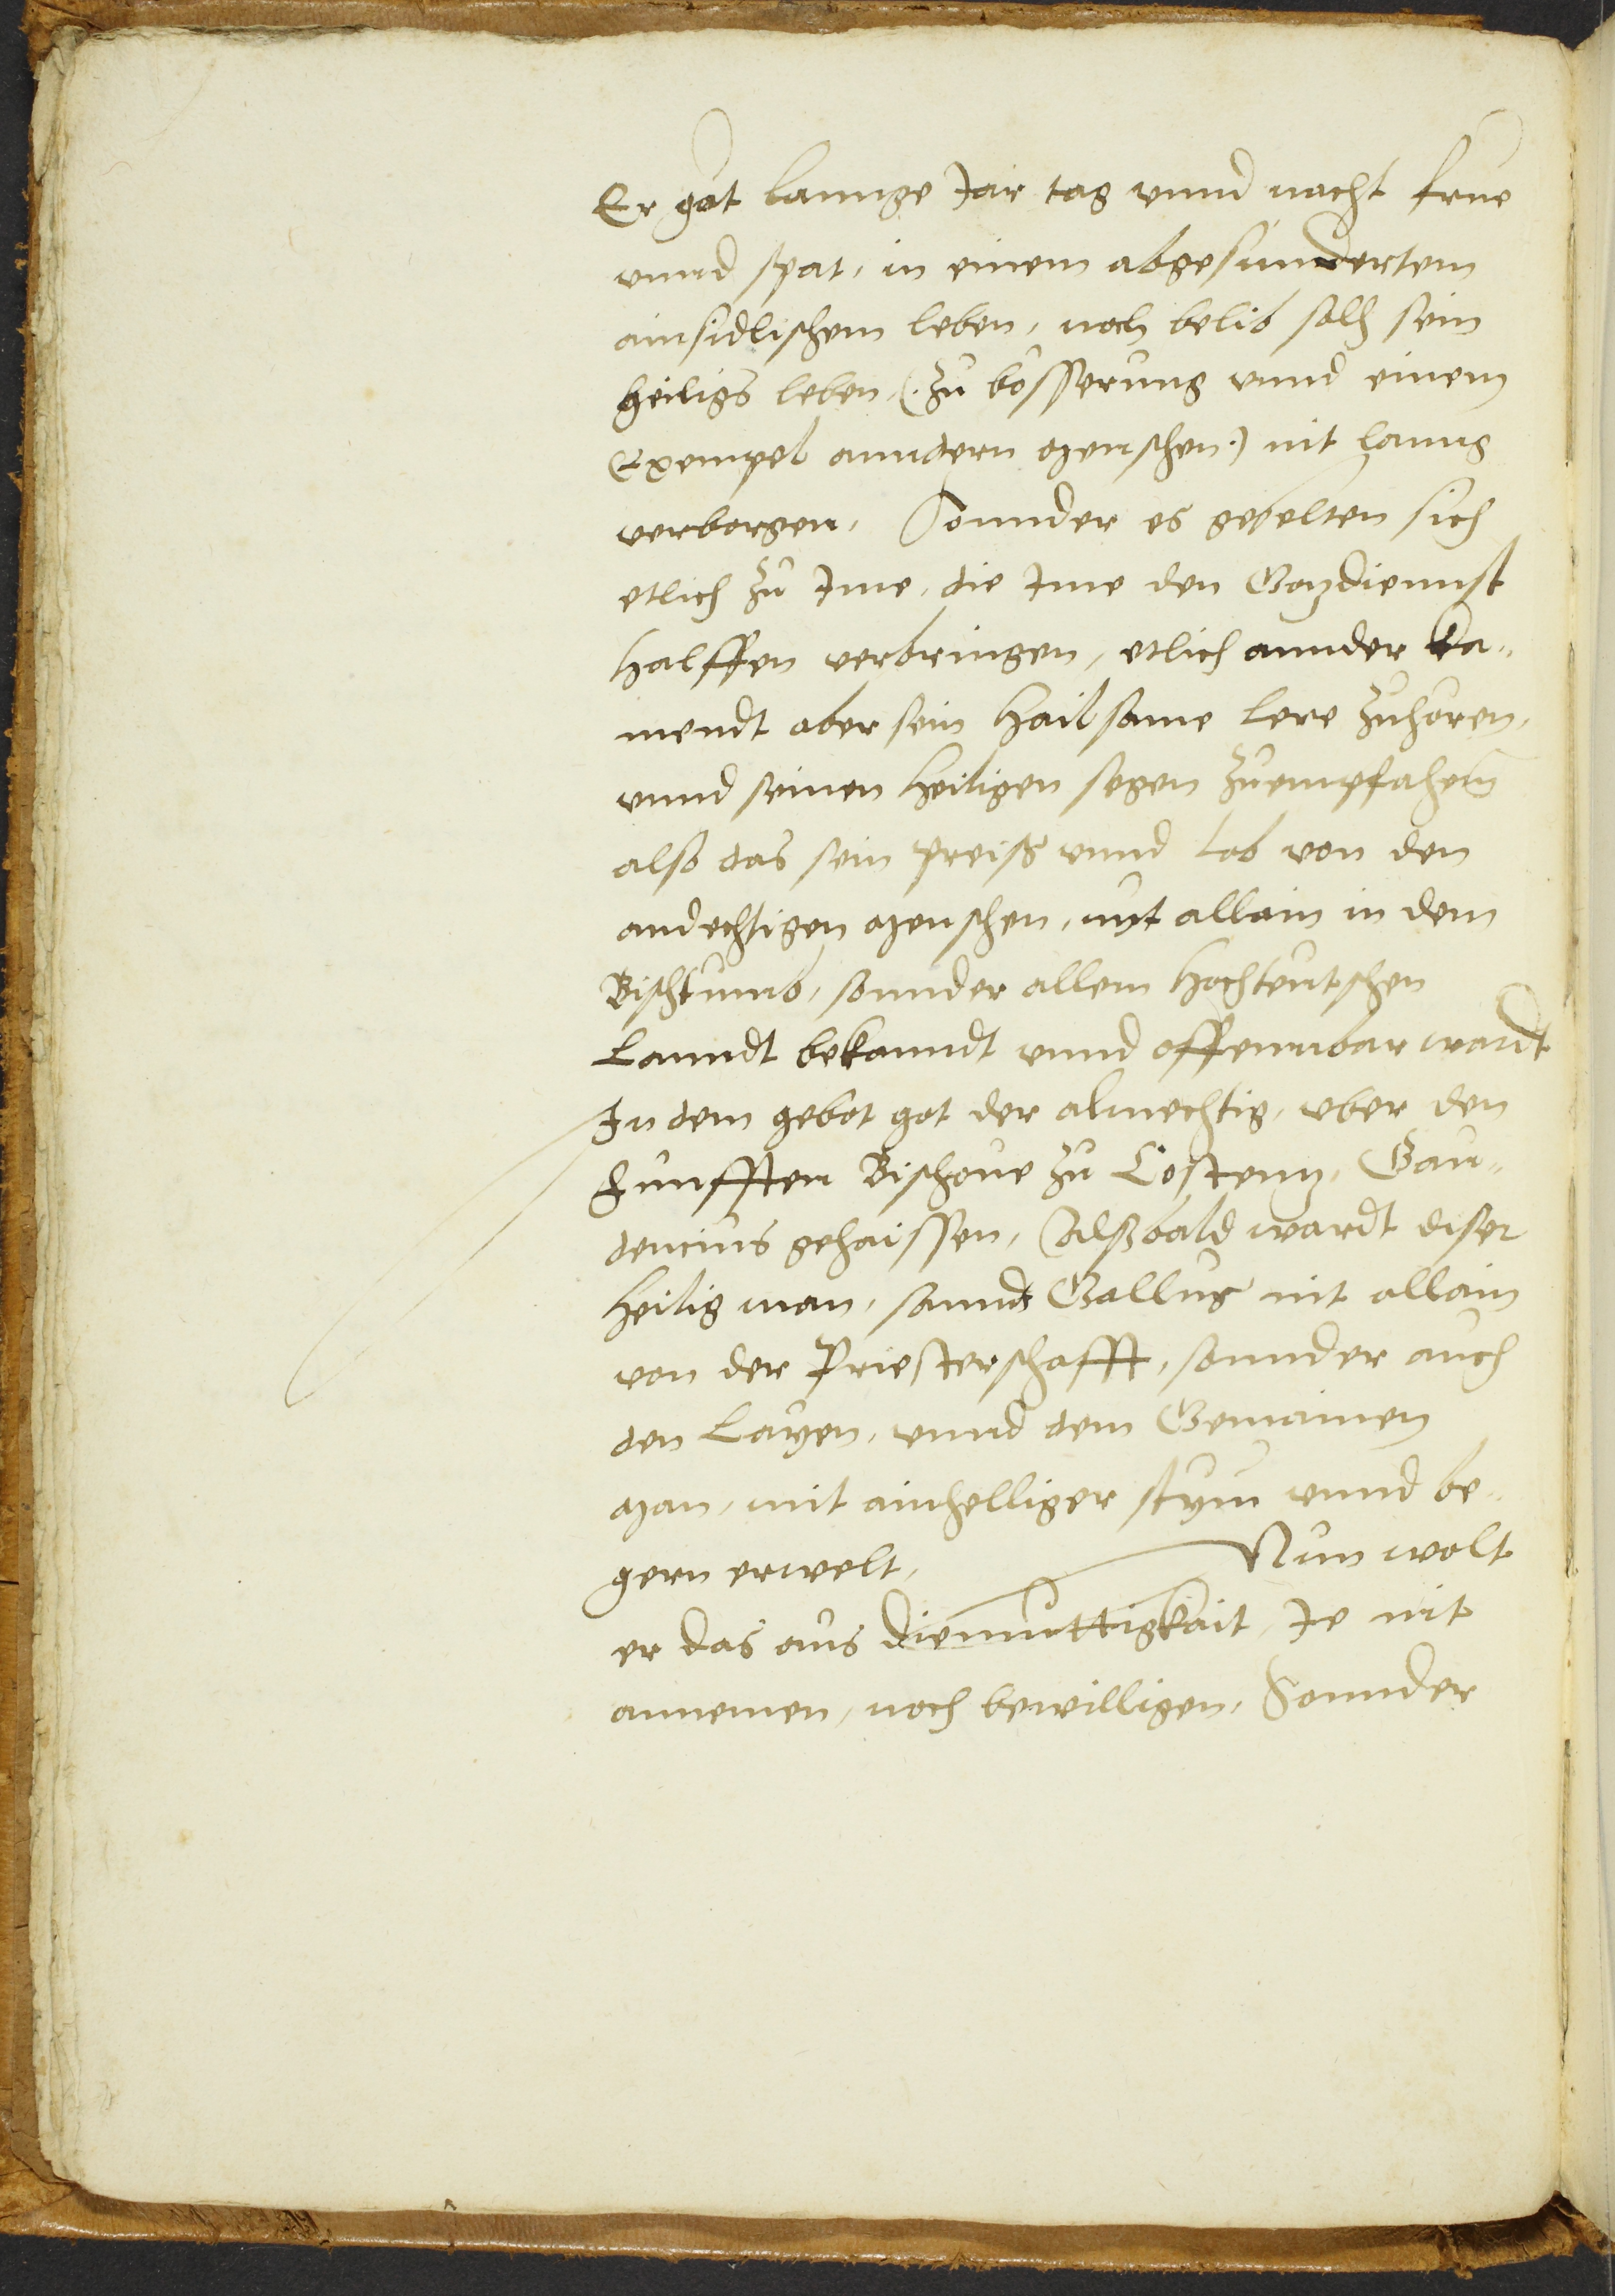 Er hat lannge Jar tag vnnd nacht frue
vnnd spat, in einem abgesundertem
ainsidlischem leben, noch belib solh sein
heiligs leben, (: zu bösserung vnnd einem
Exempel anndern menschen :) nit lanng
verborgen, Sonnder es geselten sich
etlich zu Jme, die Jme den Gozdiennst
halffen verbringen, etlich annder ka-
mendt aber sein hailsame lere zuhören,
vnnd seinen heiligen segen zuempfahen
also das sein preiss vnnd lob von den
andechtigen menschen, nit allain in dem
Bischtumb, sonnder allem hochteutschen
Lanndt bekanndt vnnd offennbar wardt
In dem gebot got der almechtig, vber den
Funfften Bischoue zu Costenz, Gau-
dencius gehaissen, Alssbald wardt diser
heilig man, sannd Gallus nit allain
von der Priesterschafft, sonnder auch
den Layen, vnnd dem Gemainen
man, mit ainhelliger stym vnnd be-
gern erwelt, Nun wolt
er das aus diemuttigkait, Je nit
annemen, noch bewilligen, Sonnder